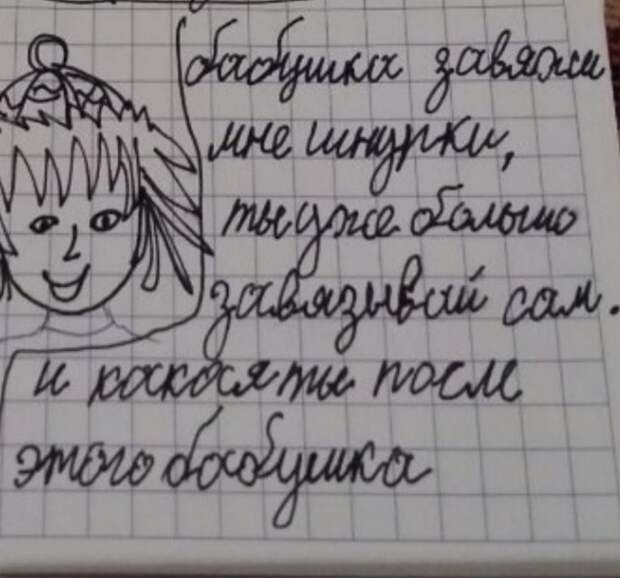 бабушка завяжи
мне шнурки,
ты уже большо
завязывай сам.
и какая ты после
этого бабушка